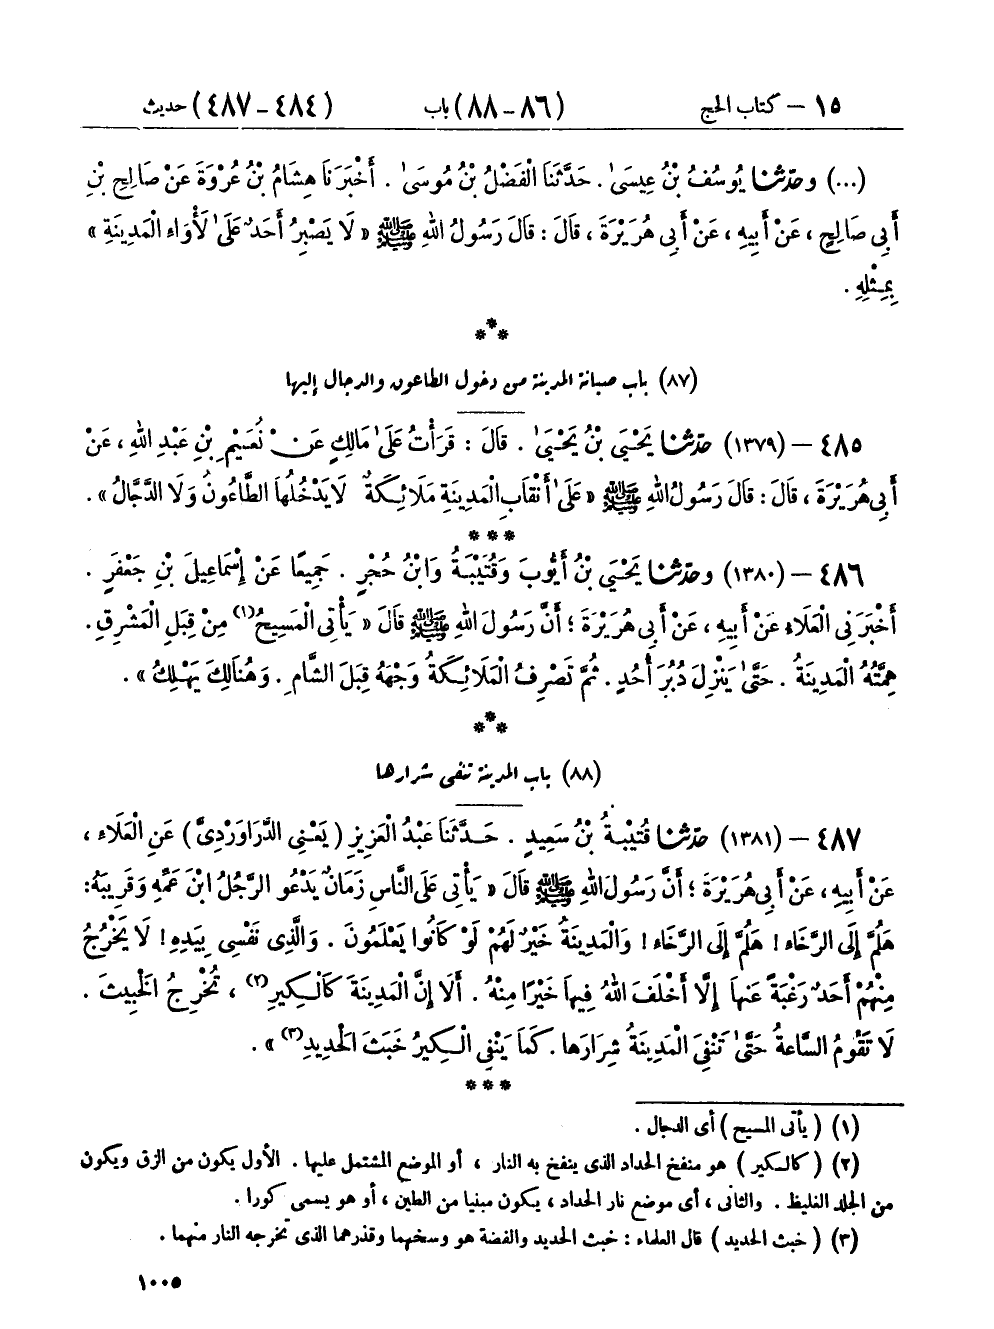 ١٥ – كتاب الحج (٨٦-٨٨) باب (٤٨٤-٤٨٧) حديث
(...) وحَدَّثَنَا يُوسُفُ بْنُ عِيسَىٰ. حَدَّثَنَا الْفَضْلُ بْنُ مُوسَىٰ. أَخْبَرَنَا هِشَامُ بْنُ عُرْوَةَ عَنْ صَالِحِ بْنِ
أَبِى صَالِحٍ، عَنْ أَبِيهِ، عَنْ أَبِى هُرَيْرَةَ، قَالَ: قَالَ رَسُولُ اللهِ ﷺ «لَا يَصْبِرُ أَحَدٌ عَلَىٰ لَأْوَاءِ الْمَدِينَةِ»
بِمِثْلِهِ.
***
(٨٧) باب صيانة المدينة من دخول الطاعون والدجال إليها
٤٨٥ – (١٣٧٩) حَدَّثَنَا يَحْيَىٰ بْنُ يَحْيَىٰ. قَالَ: قَرَأْتُ عَلَىٰ مَالِكٍ عَنْ نُعَيْمِ بْنِ عَبْدِ اللهِ، عَنْ
أَبِى هُرَيْرَةَ، قَالَ: قَالَ رَسُولُ اللهِ ﷺ «عَلَىٰ أَنْقَابِ الْمَدِينَةِ مَلَائِكَةٌ لَا يَدْخُلُهَا الطَّاعُونُ وَلَا الدَّجَّالُ».
***
٤٨٦ – (١٣٨٠) وحَدَّثَنَا يَحْيَىٰ بْنُ أَيُّوبَ وَقُتَيْبَةُ وَابْنُ حُجْرٍ. جَمِيعًا عَنْ إِسْمَاعِيلَ بْنِ جَعْفَرٍ.
أَخْبَرَنِى الْعَلَاءُ عَنْ أَبِيهِ، عَنْ أَبِى هُرَيْرَةَ؛ أَنَّ رَسُولَ اللهِ ﷺ قَالَ «يَأْتِى الْمَسِيحُ(١) مِنْ قِبَلِ الْمَشْرِقِ.
هِمَّتُهُ الْمَدِينَةُ. حَتَّىٰ يَنْزِلَ دُبُرَ أُحُدٍ. ثُمَّ تَصْرِفُ الْمَلَائِكَةُ وَجْهَهُ قِبَلَ الشَّامِ. وَهُنَالِكَ يَهْلِكُ».
***
(٨٨) باب المدينة تنفى شرارها
٤٨٧ – (١٣٨١) حَدَّثَنَا قُتَيْبَةُ بْنُ سَعِيدٍ. حَدَّثَنَا عَبْدُ الْعَزِيزِ (يَعْنِى الدَّرَاوَرْدِىَّ) عَنِ الْعَلَاءِ،
عَنْ أَبِيهِ، عَنْ أَبِى هُرَيْرَةَ؛ أَنَّ رَسُولَ اللهِ ﷺ قَالَ «يَأْتِى عَلَى النَّاسِ زَمَانٌ يَدْعُو الرَّجُلُ ابْنَ عَمِّهِ وَقَرِيبَهُ:
هَلُمَّ إِلَى الرَّخَاءِ! هَلُمَّ إِلَى الرَّخَاءِ! وَالْمَدِينَةُ خَيْرٌ لَهُمْ لَوْ كَانُوا يَعْلَمُونَ. وَالَّذِى نَفْسِى بِيَدِهِ! لَا يَخْرُجُ
مِنْهُمْ أَحَدٌ رَغْبَةً عَنْهَا إِلَّا أَخْلَفَ اللهُ فِيهَا خَيْرًا مِنْهُ. أَلَا إِنَّ الْمَدِينَةَ كَالْكِيرِ(٢)، تُخْرِجُ الْخَبِيثَ.
لَا تَقُومُ السَّاعَةُ حَتَّىٰ تَنْفِىَ الْمَدِينَةُ شِرَارَهَا. كَمَا يَنْفِى الْكِيرُ خَبَثَ الْحَدِيدِ(٣)».
***
(١) (يأتى المسيح) أى الدجال.
(٢) (كالكير) هو منفخ الحداد الذى ينفخ به النار، أو الموضع المشتمل عليها. الأول يكون من الزق ويكون
من الجلد الغليظ. والثانى، أى موضع نار الحداد، يكون مبنيا من الطين، أو هو يسمى كورا.
(٣) (خبث الحديد) قال العلماء: خبث الحديد والفضة هو وسخهما وقذرهما الذى تخرجه النار منهما.
١٠٠٥